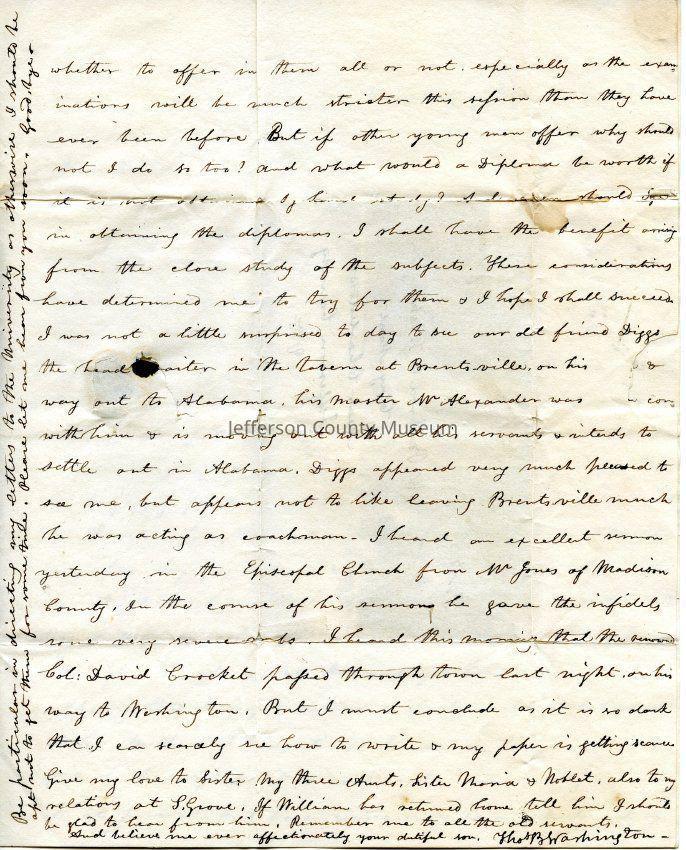 whether to offer in them all or not. especially as the exam-
inations will be much stricter this session than they have
ever been before. But if other young men offer why should
not I do so too? and what would a Diploma be worth if
it is not by hard study? should
in obtaining the diplomas. I shall have the benefit arising
from the close study of the subjects. These considerations
have determined me to try for them & I hope I shall succeed
I was not a little surprised to day to see our old friend Diggs
the head waiter in the tavern at Brentsville, on his &
way out to Alabama, his master Mr Alexander was
with him & is moving out with all his servants & intends to
settle out in Alabama. Diggs appeared very much pleased to
see me, but appears not to like leaving Brentsville much
he was acting as coachman - I heard an excellent sermon
yesterday in the Episcopal Church from Mr Jones of Madison
County. In the course of his sermon he gave the infidels
some very severe I heard this morning that the
Col: David Crocket passed through town last night, on his
way to Washington. But I must conclude as it is so dark
that I can scarcely see how to write & my paper is getting scarce
Give my love to Sister My three Aunts, Sister Maria & Noblet, also to my
relations at S. Grove. If William has returned home tell him I should
be glad to hear from him. Remember me to all the old servants.
And believe me ever affectionately your dutiful son. Thos B Washington -
Be particular in directing my letters to the University as otherwise I should be
apt not to get them for some time. Please let me hear from you soon. Good bye
Jefferson County Museum